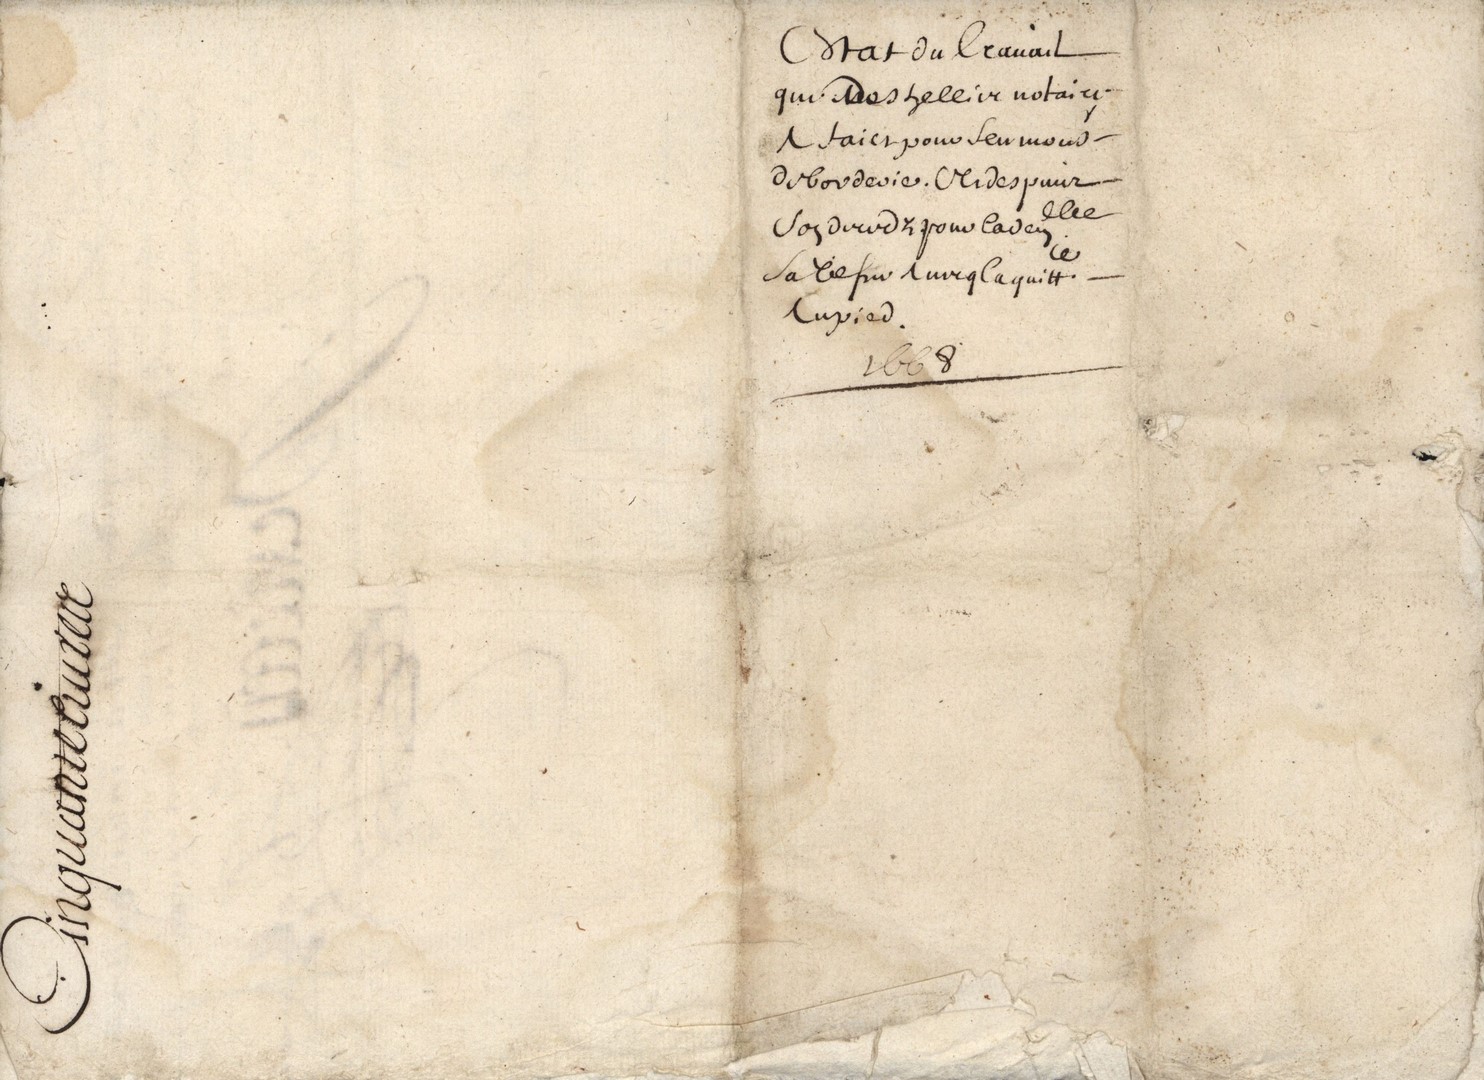 Estat du travail
que Me Stellier notaire
A faict pour feu mons
de borderie. Et despuis
son deces pour la delle
sa vefve Avec la quittce
Au pied.
1668
Cinquante